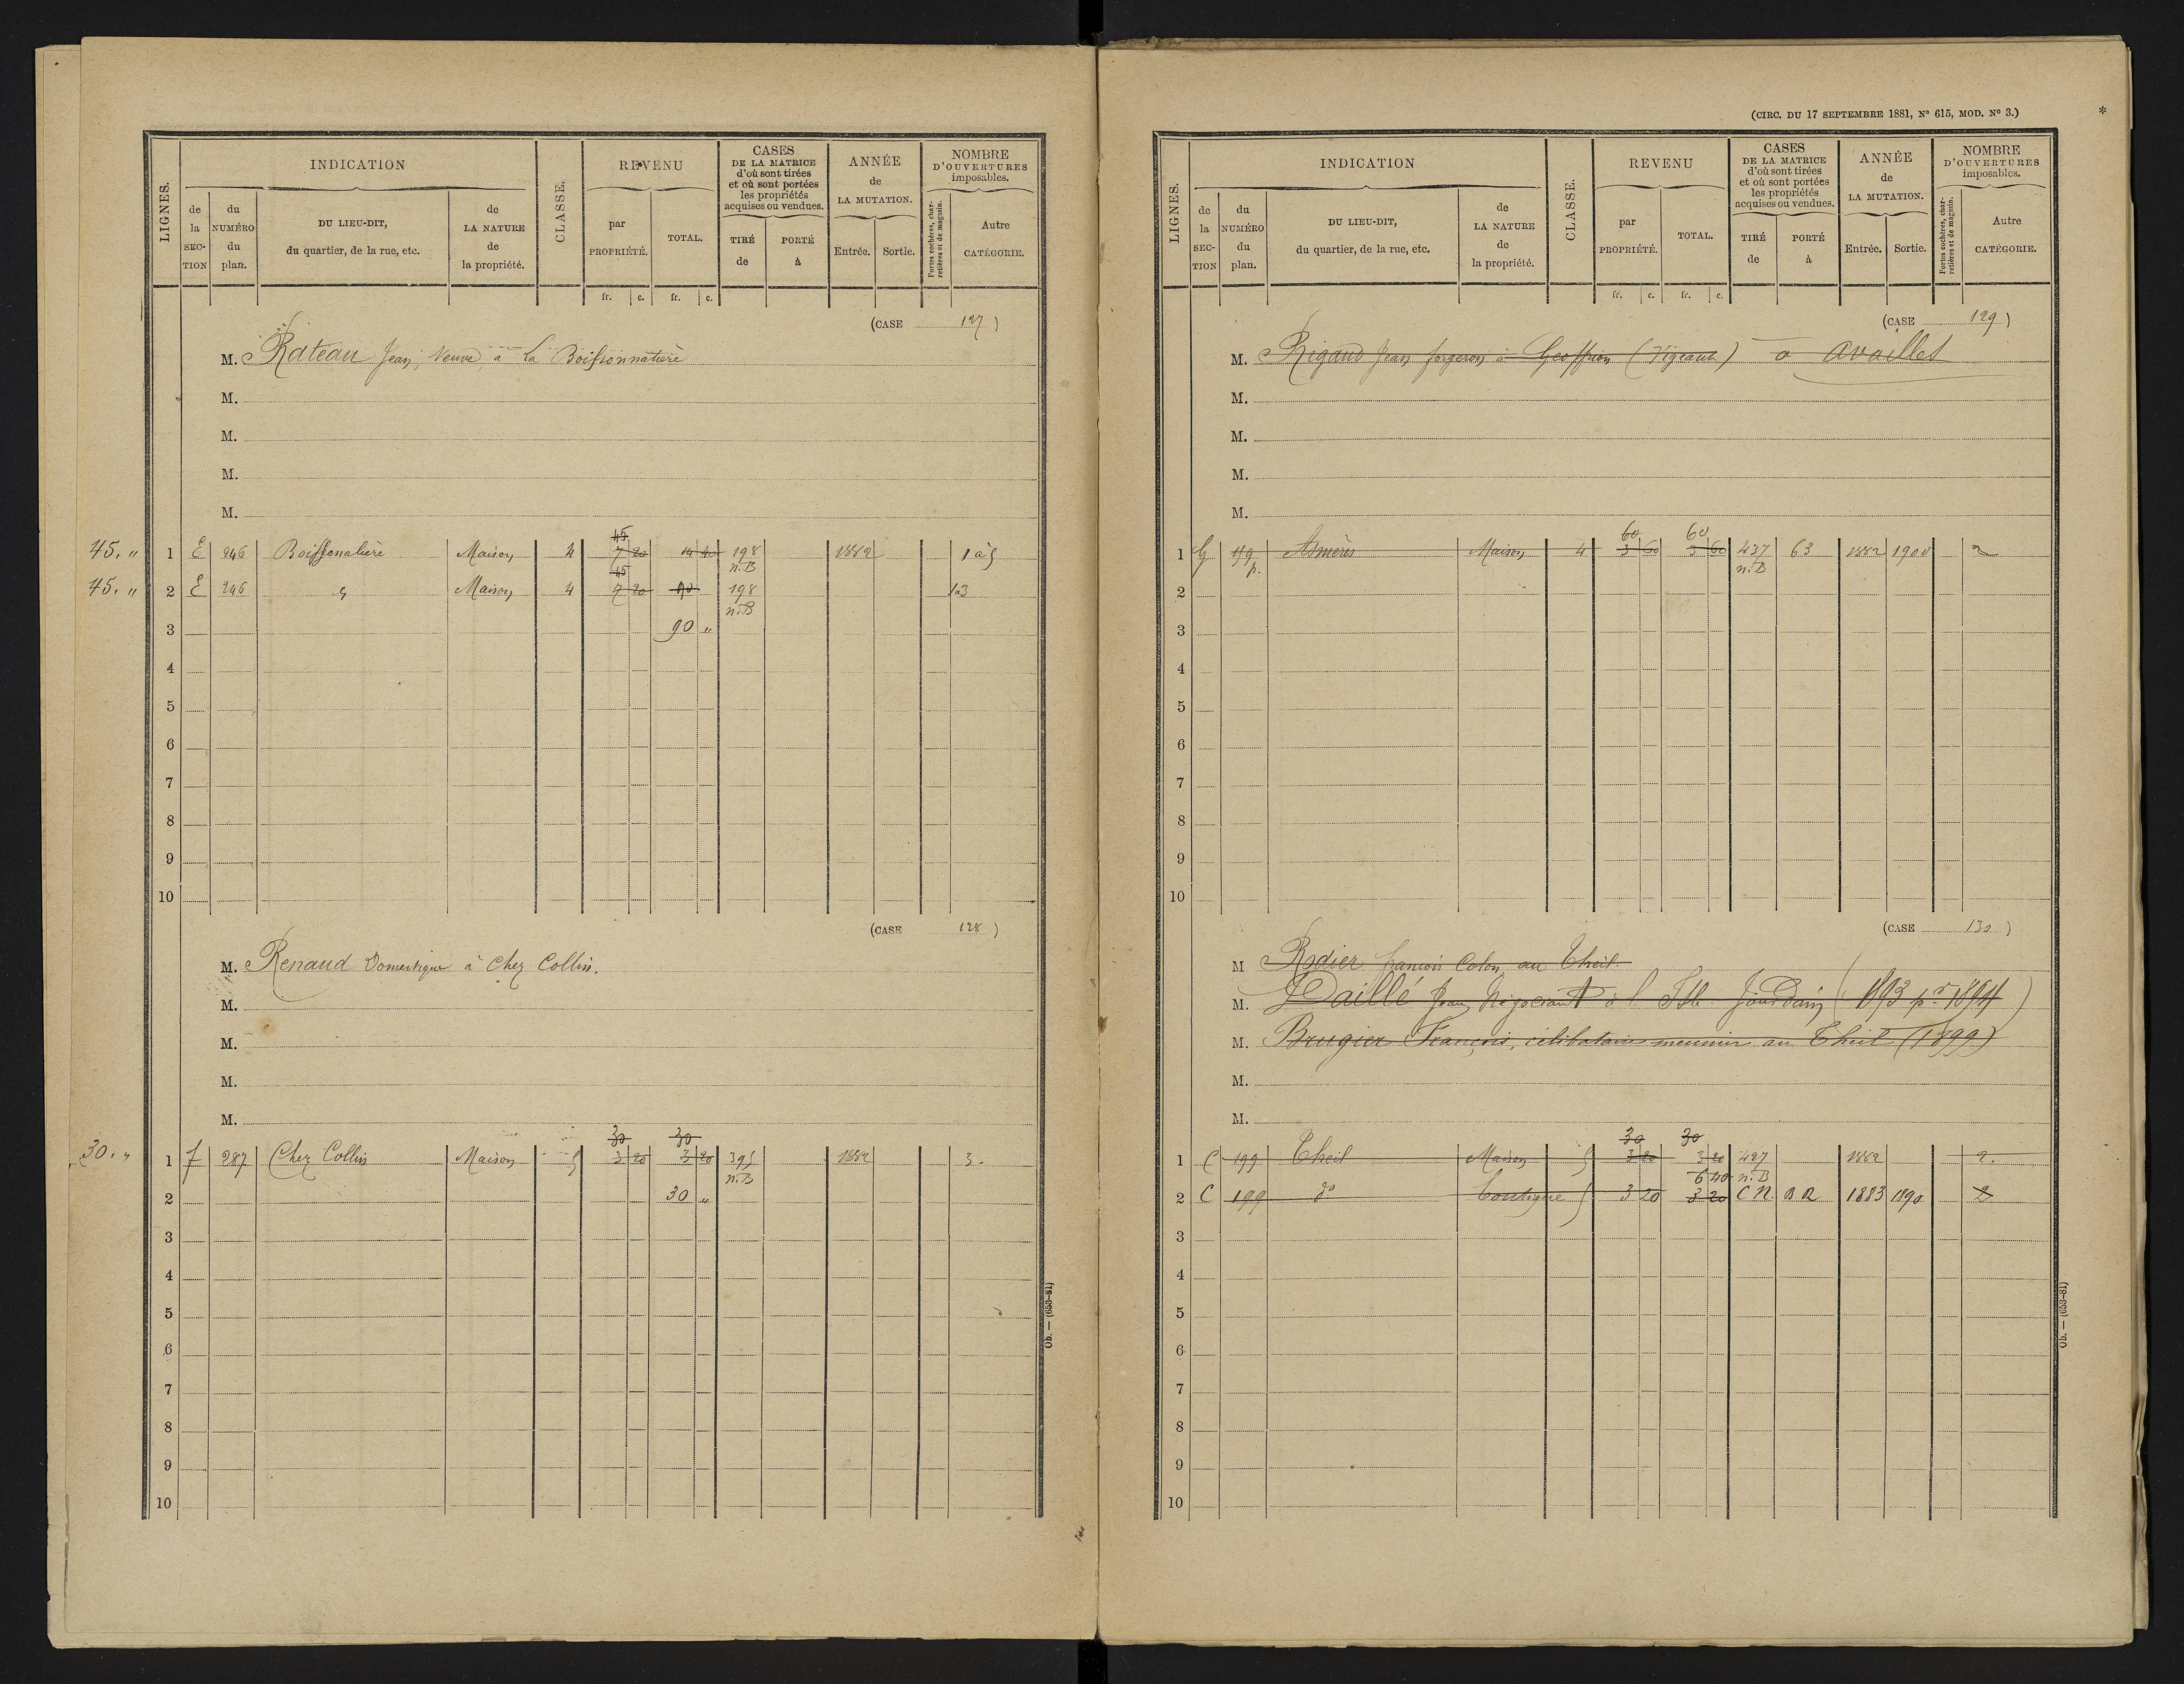 LIGNES.
INDICATION
de la SECTION
du NUMÉRO du plan.
DU LIEU-DIT, du quartier, de la rue, etc.
de LA NATURE de la propriété.
CLASSE.
REVENU
par PROPRIÉTÉ.
TOTAL.
CASES DE LA MATRICE d'où sont tirées et où sont portées les propriétés acquises ou vendues.
TIRÉ de
PORTÉ à
ANNÉE de LA MUTATION.
Entrée.
Sortie.
NOMBRE D'OUVERTURES imposables.
Portes cochères, charretières et de magasin.
Autre CATÉGORIE.
fr. c. fr. c.
(CASE 127)
M. Rateau Jean, Veuve à La Boissonnatière
M.
M.
M.
M.
45. " 1 E 246 Boissonalière Maison 4 45 7 20 14 40 198 n.B 1882 1 à 5
45. " 2 E 246 " Maison 4 45 7 20 90 198 n.B 1 à 3
3 90 "
4
5
6
7
8
9
10
(CASE 128)
M. Renaud Domestique à Chez Collin.
M.
M.
M.
M.
30. " 1 f 287 Chez Collin Maison 5 30 3 20 30 3 20 395 n.B 1882 3.
2 30 "
3
4
5
6
7
8
9
10
Ob. — (653-81)
(CIRC. DU 17 SEPTEMBRE 1881, Nº 615, MOD. Nº 3.)
*
LIGNES.
INDICATION
de la SECTION
du NUMÉRO du plan.
DU LIEU-DIT, du quartier, de la rue, etc.
de LA NATURE de la propriété.
CLASSE.
REVENU
par PROPRIÉTÉ.
TOTAL.
CASES DE LA MATRICE d'où sont tirées et où sont portées les propriétés acquises ou vendues.
TIRÉ de
PORTÉ à
ANNÉE de LA MUTATION.
Entrée.
Sortie.
NOMBRE D'OUVERTURES imposables.
Portes cochères, charretières et de magasin.
Autre CATÉGORIE.
fr. c. fr. c.
(CASE 129)
M. Rigaud Jean forgeron à Geoffrion (Vigeant) à Availles
M.
M.
M.
M.
1 G 119 p. Asnières Maison 4 60 3 60 60 3 60 437 n.B 63 1882 1900 2
2
3
4
5
6
7
8
9
10
(CASE 130)
M Rodier françois Colon au Theil.
M. Daillé Jean Négociant à l'Isle Jourdain (1893 pr 1894)
M. Brugier François, célibataire meunier au Theil (1899)
M.
M.
1 C 199 Theil Maison 5 30 3 20 30 3 20 427 n.B 1882 2.
2 C 199 do boutique 5 3 20 6 40 3 20 C N. 1883 1890 2
3
4
5
6
7
8
9
10
Ob. — (653-81)